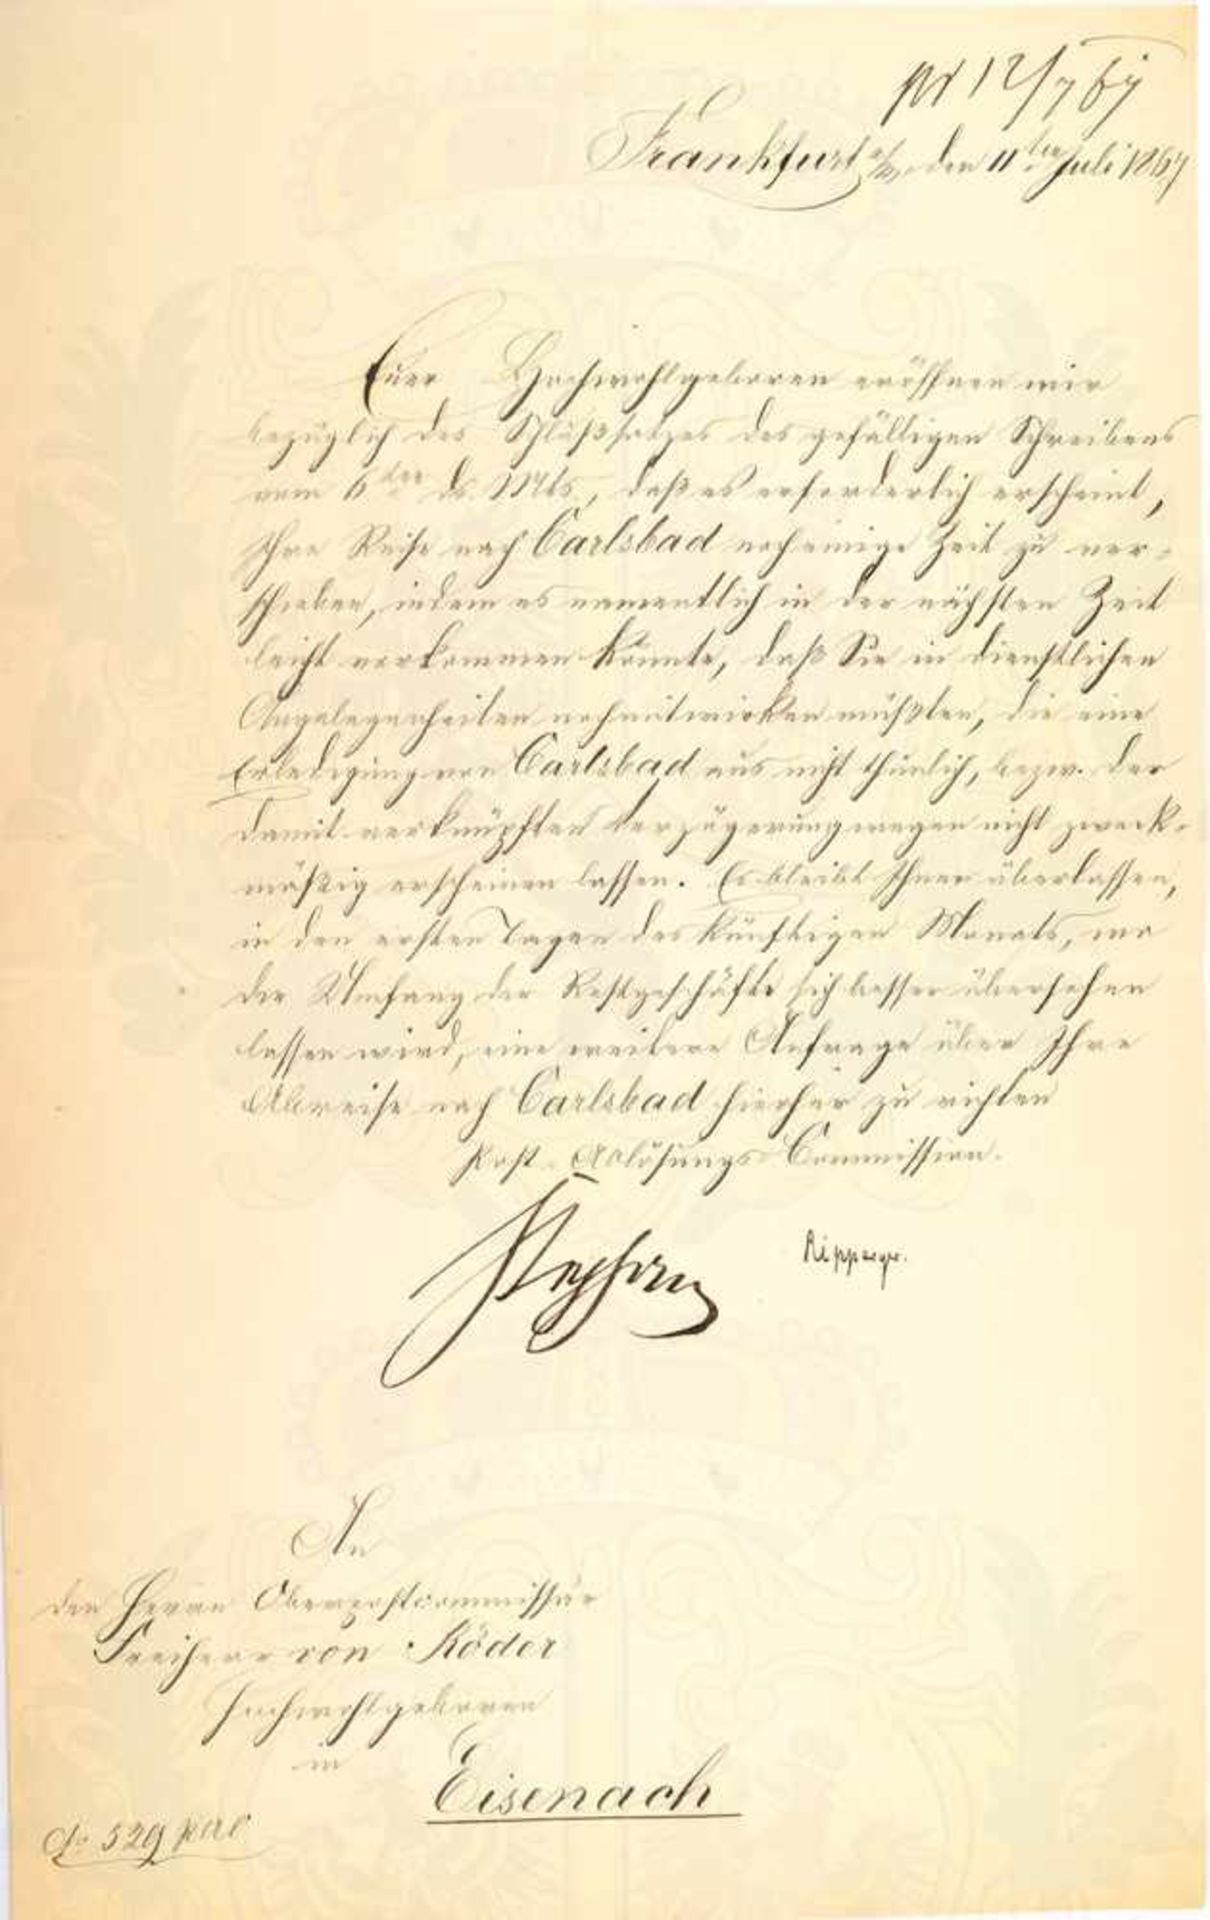 pr 12/7 67
Frankfurt a/M. den 11ten Juli 1867
Euer Hochwohlgeboren eröffnen wir
bezüglich des Schlußsatzes des gefälligen Schreibens
vom 6ten ds. Mts., daß es erforderlich erscheint,
Ihre Reise nach Carlsbad noch einige Zeit zu ver-
schieben, indem es namentlich in der nächsten Zeit
leicht vorkommen könnte, daß Sie in dienstlichen
Angelegenheiten noch mitwirken müßten, die eine
Erledigung von Carlsbad aus nicht thunlich, bezw. der
damit verknüpften Verzögerung wegen nicht zweck-
mäßig erscheinen lassen. Es bleibt Ihnen überlassen,
in den ersten Tagen des künftigen Monats, wo
der Umfang der Restgeschäfte sich besser übersehen
lassen wird, eine weitere Anfrage über Ihre
Abreise nach Carlsbad hierher zu richten
Post-Ablösungs-Commission.
Stephan
Ripperger.
An
den Herrn Oberpostcommissär
Freiherr von Röder
Hochwohlgeboren
in
Eisenach
529